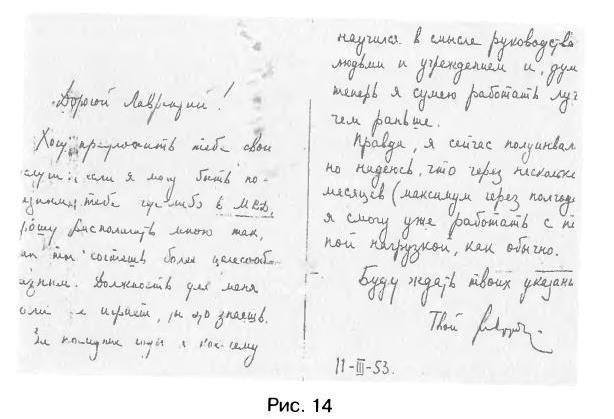 Дорогой Лаврентий!
Хочу предложить тебе свои
услуги: если я могу быть по-
тебе где-либо в МВД,
прошу располагать мною так,
как ты сочтешь более целесооб-
разным. Должность для меня
роли не играет, ты это знаешь.
За последнее я кое-чему
научился в смысле руководства
людьми и учреждением и, дум
теперь я сумею работать луч
чем раньше.
Правда, я сейчас полуинвал
но надеюсь, что через несколько
месяцев (максимум через полгода
я смогу уже работать с по
ной нагрузкой, как обычно.
Буду ждать твоих указани
Твой
11-III-53.
Рис. 14